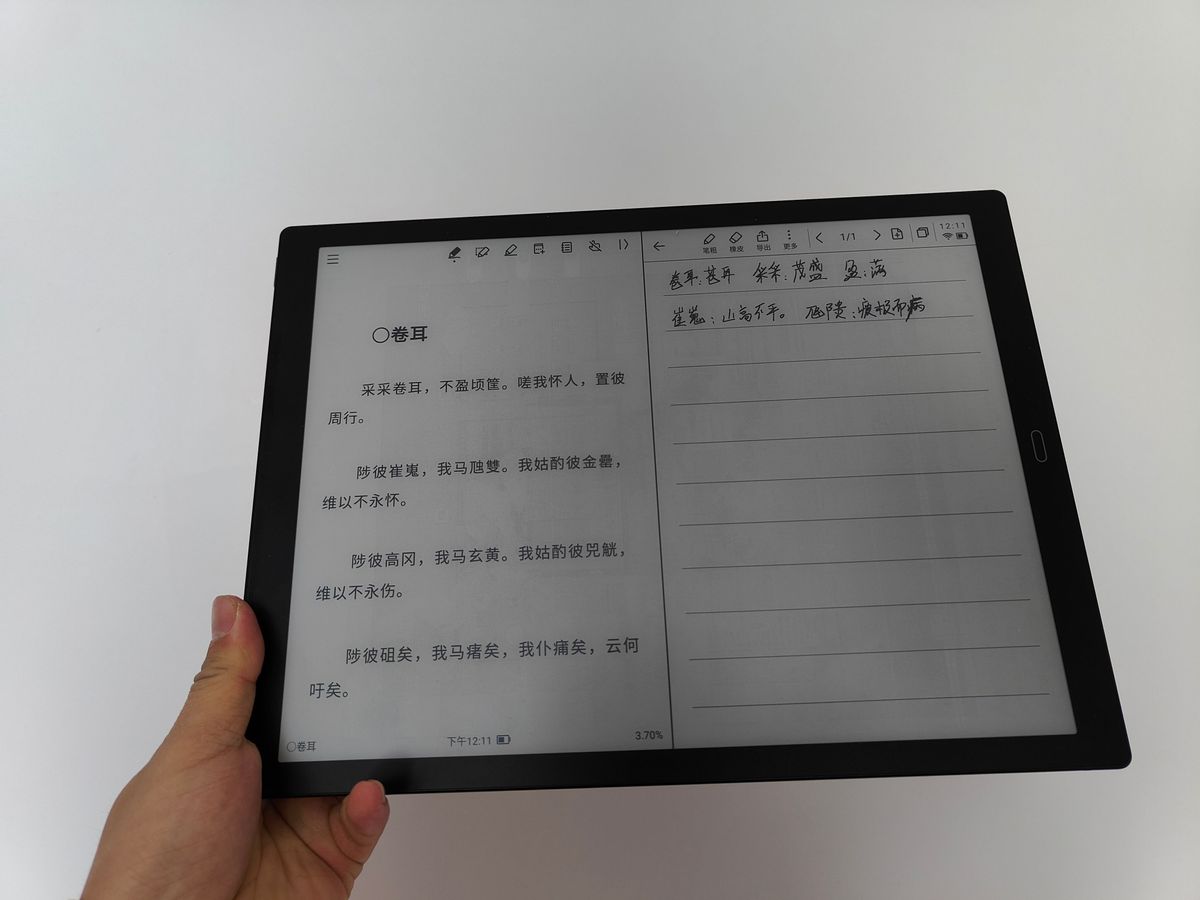 〇卷耳
采采卷耳，不盈顷筐。嗟我怀人，置彼
周行。
陟彼崔嵬，我马虺雙。我姑酌彼金罍，
维以不永怀。
陟彼高冈，我马玄黄。我姑酌彼兕觥，
维以不永伤。
陟彼砠矣，我马瘏矣，我仆痡矣，云何
吁矣。
〇卷耳
下午12:11
3.70%
笔粗 橡皮 导出 更多
1/1
12:11
卷耳：苍耳 采采：茂盛 盈：满
崔嵬：山高不平。 虺隤：疲极而病